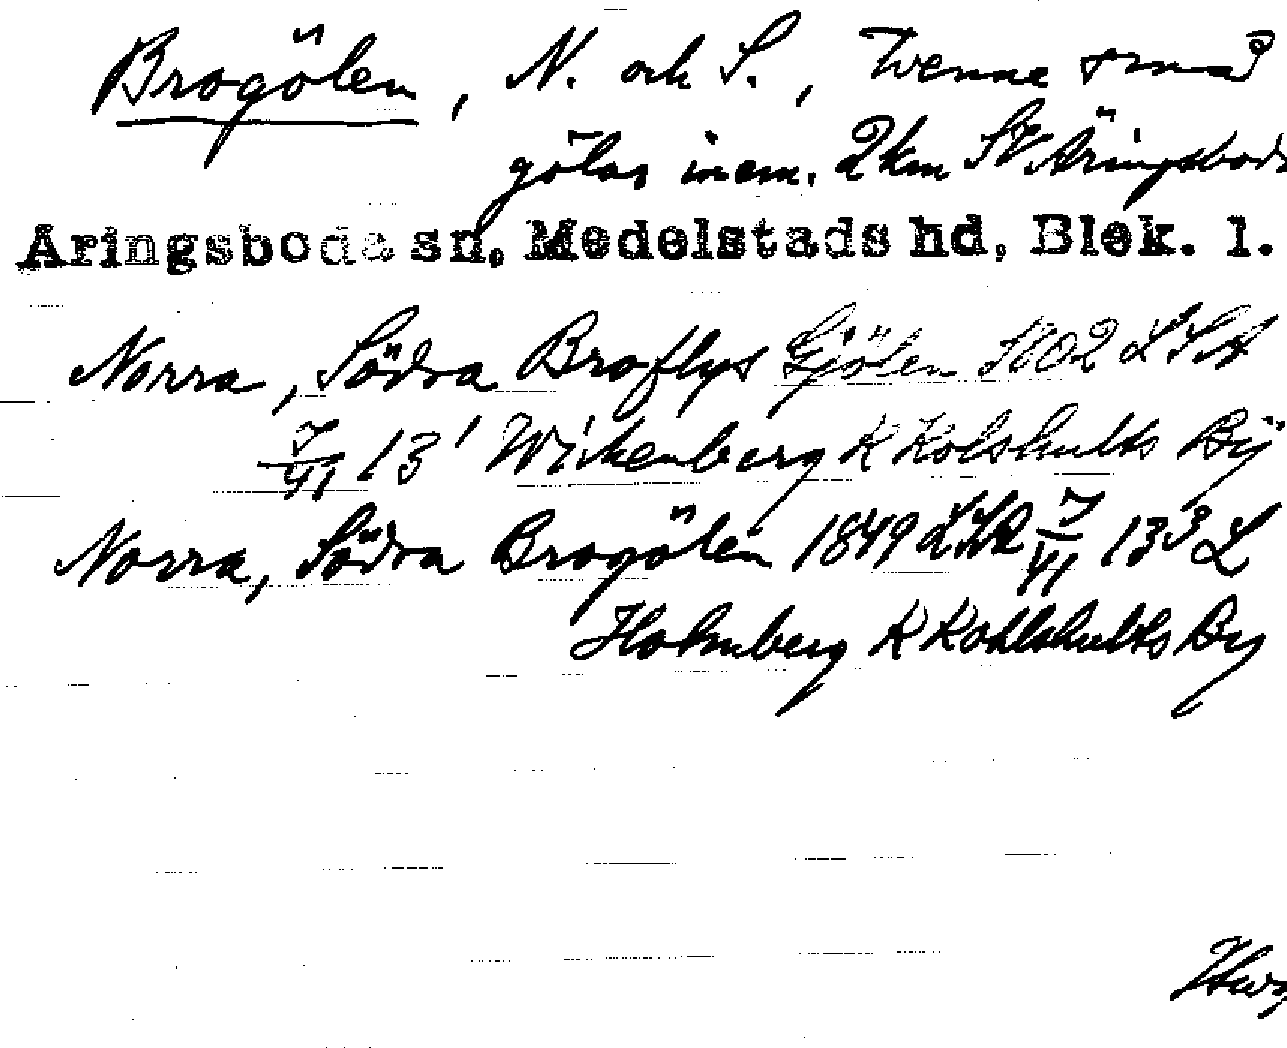 Brogölen, N. och S., Twenne små
gölar inem. 2 km SV Äringsboda
Äringsboda sn, Medelstads hd, Blek. l.
Norra, Södra Broflys Gjölen 1802 LSA
7/VI 13¹ Wickenberg K Kolshults By
Norra, Södra Brogölen 1849 LSA 7/VI 13³ L
Holmberg K Kohlshults By